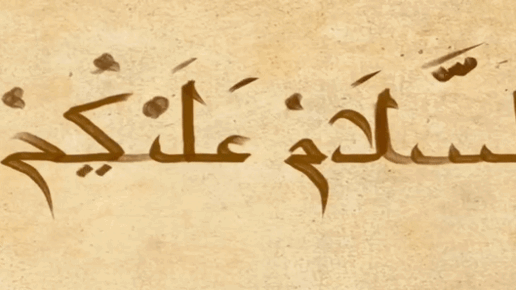 لسَّلَامُ عَلَيْكُمْ